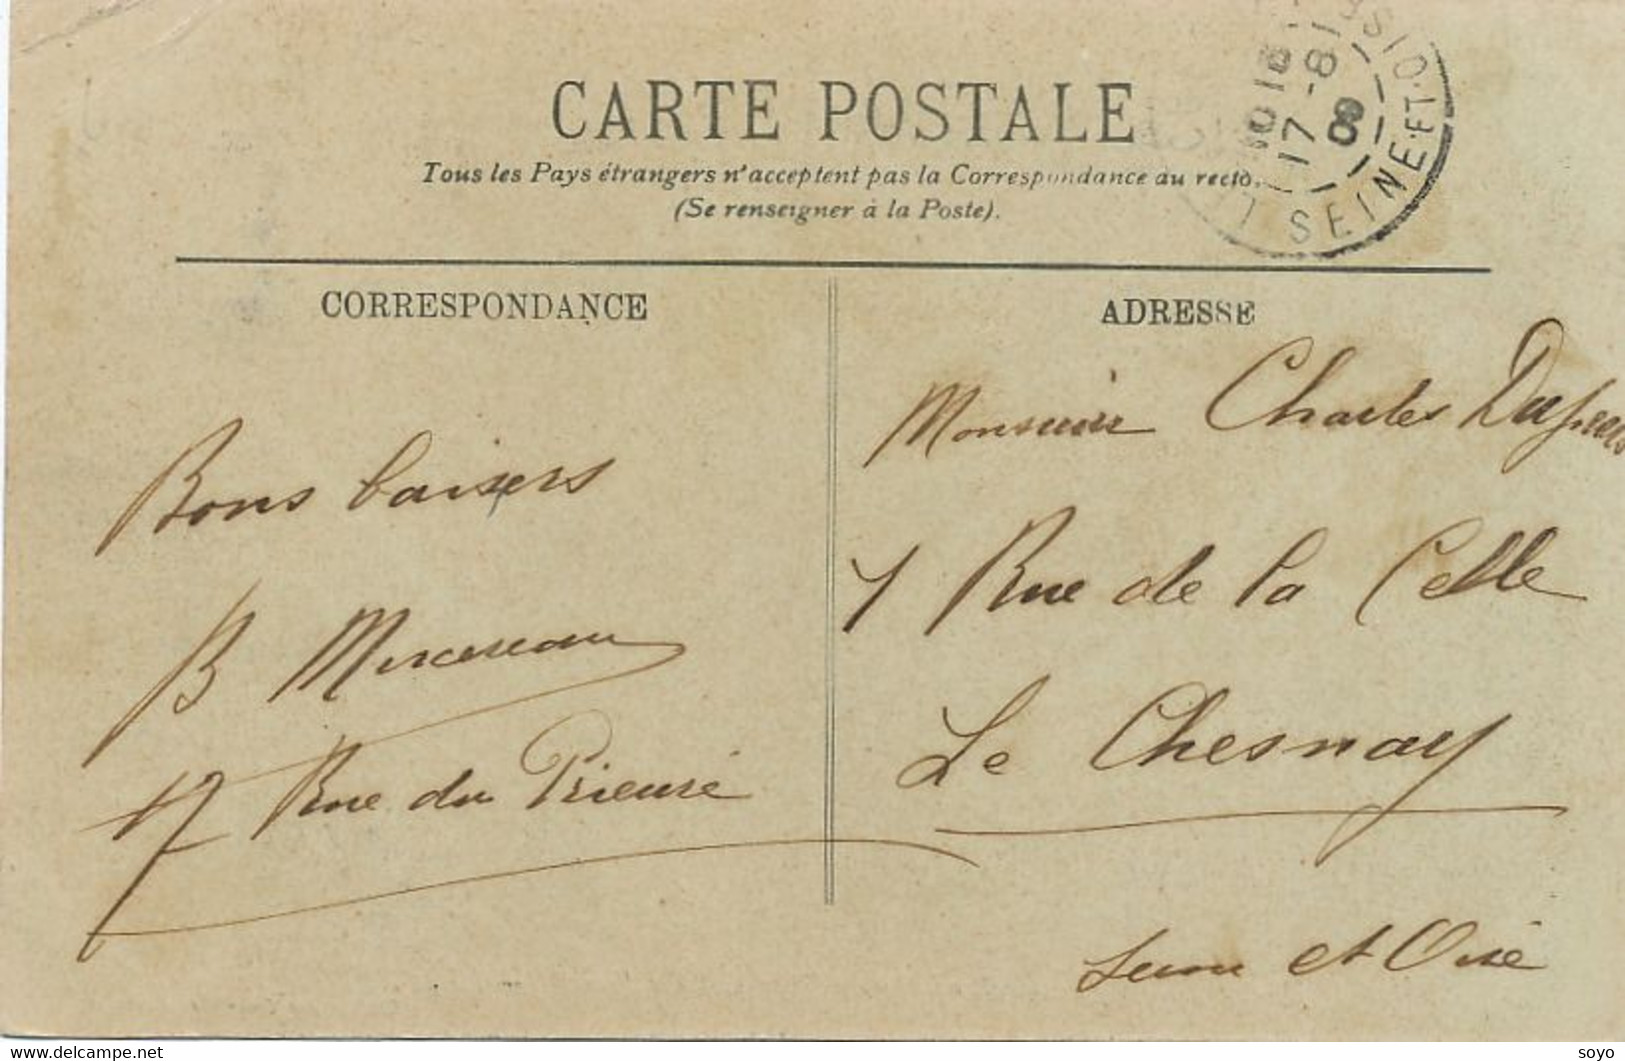 CARTE POSTALE
Tous les Pays étrangers n'acceptent pas la Correspondance au recto.
(Se renseigner à la Poste).
17 - 8
08
SEINE-ET-OISE
CORRESPONDANCE
ADRESSE
Bons baisers
B
17 Rue du Prieuré
Monsieur Charles
1 Rue de la Celle
Le Chesnay
Seine et Oise
delcampe.net
soyo